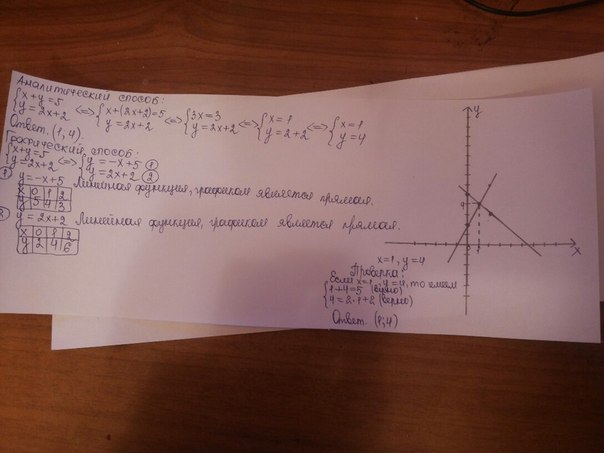 Аналитический способ:
{x+y=5 <=> {x+(2x+2)=5 <=> {3x=3 <=> {x=1 <=> {x=1
{y=2x+2 {y=2x+2 {y=2x+2 {y=2+2 {y=4
Ответ. (1,4)
Графический способ:
{x+y=5 <=> {y=-x+5 ①
{y=2x+2 {y=2x+2 ②
① y=-x+5 Линейная функция, графиком является прямая.
x 0 1 2
y 5 4 3
② y=2x+2 Линейная функция, графиком является прямая.
x 0 1 2
y 2 4 6
y
4
1
x
x=1, y=4
Проверка:
Если x=1, y=4, то имеем
{1+4=5 (верно)
{4=2·1+2 (верно)
Ответ. (1;4)